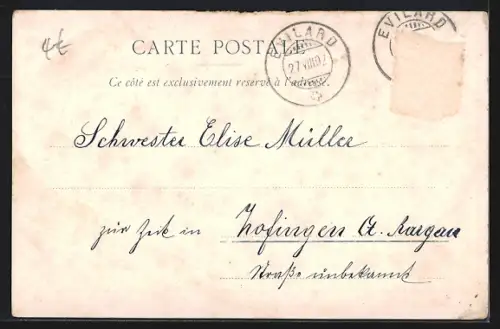 4€
CARTE POSTALE
EVILARD
27 VIII 02
EVILARD
Ce côté est exclusivement reservé à l'adresse.
Schwester Elise Müller
zur Zeit in Zofingen Ct. Aargau
Straße unbekannt